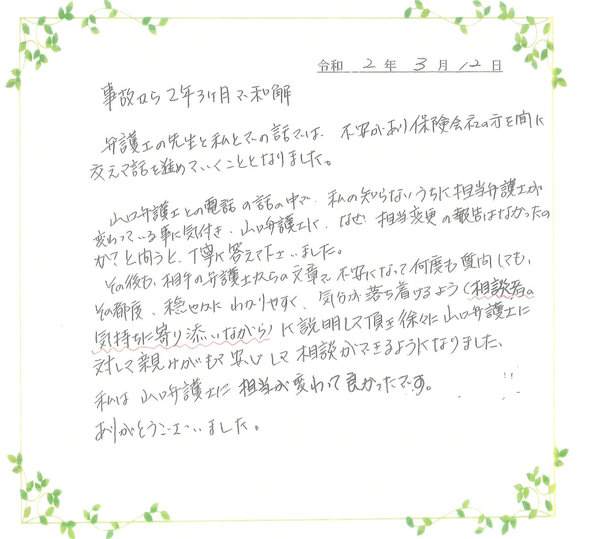 令和 2 年 3 月 12 日
事故から2年3ヶ月で和解
弁護士の先生と私とでの話では、不安があり保険会社の方を間に
交えて話を進めていくこととなりました。
山口弁護士との電話の話の中で、私の知らないうちに担当弁護士が
変わっている事に気付き、山口弁護士に、なぜ担当変更の報告はなかったの
か?と問うと、丁寧に答えて下さいました。
その後も、相手の弁護士からの文章で不安になって何度も質問しても、
その都度、穏やかにわかりやすく、気分が落ち着けるよう(相談者の
気持ちに寄り添いながら)に説明して頂き徐々に山口弁護士に
対して親しみがもて安心して相談ができるようになりました、
私は山口弁護士に担当が変わって良かったです。
ありがとうございました。